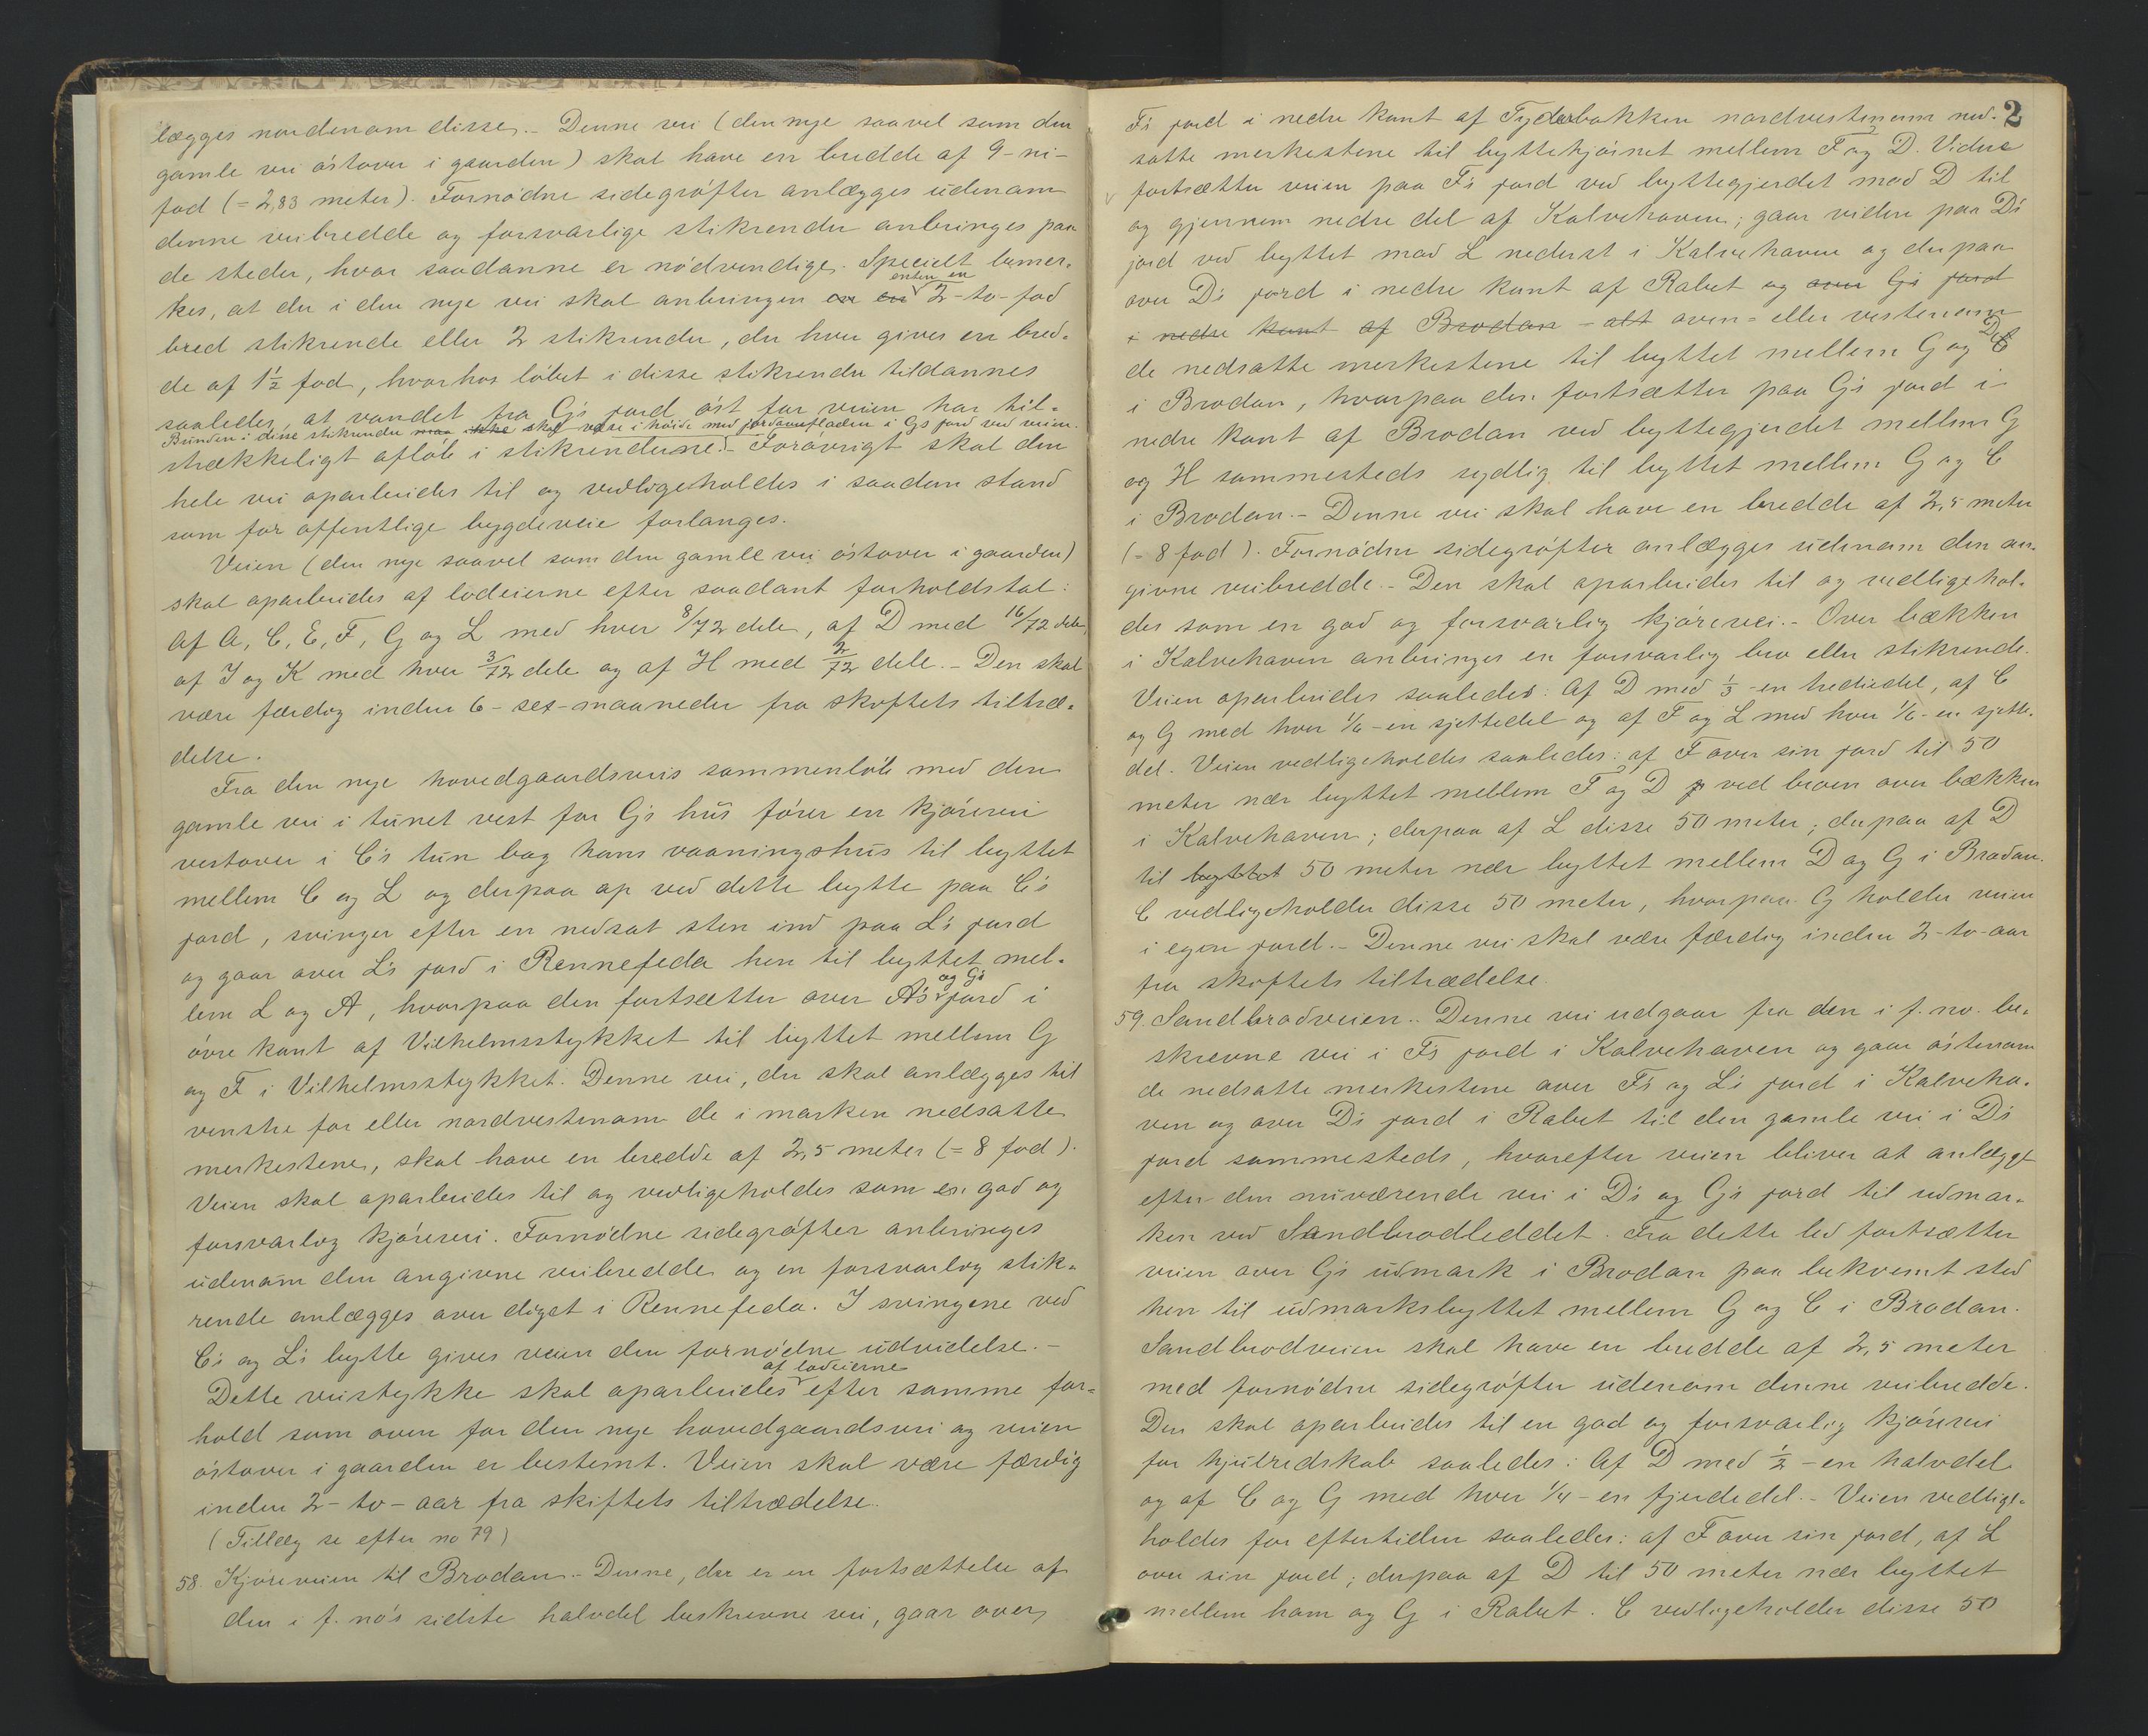 lægges nordenom disse. - Denne vei (den nye saavel som den
gamle vei óstover i gaarden) skal have en bredde af 9-ni-
fod (= 2,83 meter). Fornódne sidegrófter anlægges udenom
denne veibredde og forsvarlige stikrender anbringes paa
de steder, hvor saadanne er nódvendige. Specielt bemer-
enten en
kes, at der i den nye vei skal anbringes en en 2-to-fod
bred stikrende eller 2 stikrender, der hver gives en bred-
de af 1½ fod, hvorhos lóbet i disse stikrender tildannes
saaledes, at vandet fra G's jord óst for veien har til-
Bunden i disse stikrender maa ikke skal være i høide med jordoverfladen i G's jord ved veien.
strækkeligt aflób i stikrenderne. - Foróvrigt skal den
hele vei oparbeides til og vedligeholdes i saadan stand
som for offentlige bygdeveie forlanges.
Veien (den nye saavel som den gamle vei óstover i gaarden)
skal oparbeides af lodeierne efter saadant forholdstal:
Af A, C, E, F, G og L med hver 8/72 dele, af D med 16/72 dele,
af J og K med hver 3/72 dele og af H med 2/72 dele. - Den skal
være færdig inden 6-sex-maaneder fra skiftets tiltræ-
delse.
Fra den nye hovedgaardsveis sammenlób med den
gamle vei i tunet vest for G's hus fórer en kjórevei
vestover i C's tun bag hans vaaningshus til byttet
mellem C og L og derpaa op ved dette bytte paa C's
jord, svinger efter en nedsat sten ind paa L's jord
og gaar over L's jord i Rennefeda hen til byttet mel-
og G's
lem L og A, hvorpaa den fortsætter over A's jord i
óvre kant af Vilhelmsstykket til byttet mellem G
og F i Vilhelmsstykket. Denne vei, der skal anlægges til
venstre for eller nordvestenom de i marken nedsatte
merkestene, skal have en bredde af 2,5 meter (= 8 fod).
Veien skal oparbeides til og vedligeholdes som en god og
forsvarlig kjórevei. Fornódne sidegrófter anbringes
udenom den angivne veibredde og en forsvarlig stik-
rende anlægges over diget i Rennefeda. I svingene ved
C's og L's bytte gives veien den fornódne udvidelse. -
af lodeierne
Dette veistykke skal oparbeides efter samme for-
hold som oven for den nye hovedgaardsvei og veien
óstover i gaarden er bestemt. Veien skal være færdig
inden 2-to-aar fra skiftets tiltrædelse.
(Tillæg se efter no 79)
58. Kjóreveien til Brodan. - Denne, der er en fortsættelse af
den i f. no's sidste halvdel beskrevne vei, gaar over
2
F's jord i nedre kant af Tyderbakken nordvestenom ned-
satte merkestene til byttehjórnet mellem F og D. Videre
fortsætter veien paa F's jord ved byttegjerdet mod D til
og gjennem nedre del af Kalvehaven; gaar videre paa D's
jord ved byttet mod L nederst i Kalvehaven og derpaa
over D's jord i nedre kant af Rabet og over G's jord
i nedre kant af Brodan - alt oven- eller vestenom
D
de nedsatte merkestene til byttet mellem G og C
i Brodan, hvorpaa den fortsætter paa G's jord i
nedre kant af Brodan ved byttegjerdet mellem G
og H sammesteds sydlig til byttet mellem G og C
i Brodan. - Denne vei skal have en bredde af 2,5 meter
(= 8 fod). Fornódne sidegrófter anlægges udenom den an-
givne veibredde. - Den skal oparbeides til og vedligehol-
des som en god og forsvarlig kjórevei. - Over bækken
i Kalvehaven anbringes en forsvarlig bro eller stikrende.
Veien oparbeides saaledes: Af D med ⅓-en trediedel, af C
og G med hver 1/6-en sjettedel og af F og L med hver 1/6-en sjette-
del. Veien vedligeholdes saaledes: af F over sin jord til 50
meter nær byttet mellem F og D ved broen over bækken
i Kalvehaven; derpaa af L disse 50 meter; derpaa af D
til byttet 50 meter nær byttet mellem D og G i Brodan.
C vedligeholder disse 50 meter, hvorpaa G holder veien
i egen jord. - Denne vei skal være færdig inden 2-to-aar
fra skiftets tiltrædelse.
59. Sandbrodveien. - Denne vei udgaar fra den i f. no. be-
skrevne vei i F's jord i Kalvehaven og gaar óstenom
de nedsatte merkestene over F's og L's jord i Kalveha-
ven og over D's jord i Rabet til den gamle vei i D's
jord sammesteds, hvorefter veien bliver at anlægge
efter den nuværende vei i D's og G's jord til udmar-
ken ved Sandbrodleddet. Fra dette led fortsætter
veien over G's udmark i Brodan paa bekvemt sted
hen til udmarksbyttet mellem G og C i Brodan.
Sandbrodveien skal have en bredde af 2,5 meter
med fornódne sidegrófter udenom denne veibredde.
Den skal oparbeides til en god og forsvarlig kjórevei
for hjulredskab saaledes: Af D med ½-en halvdel
og af C og G med hver ¼-en fjerdedel. - Veien vedlige-
holdes for eftertiden saaledes: af F over sin jord, af L
over sin jord; derpaa af D til 50 meter nær byttet
mellem ham og G i Rabet. C vedligeholder disse 50